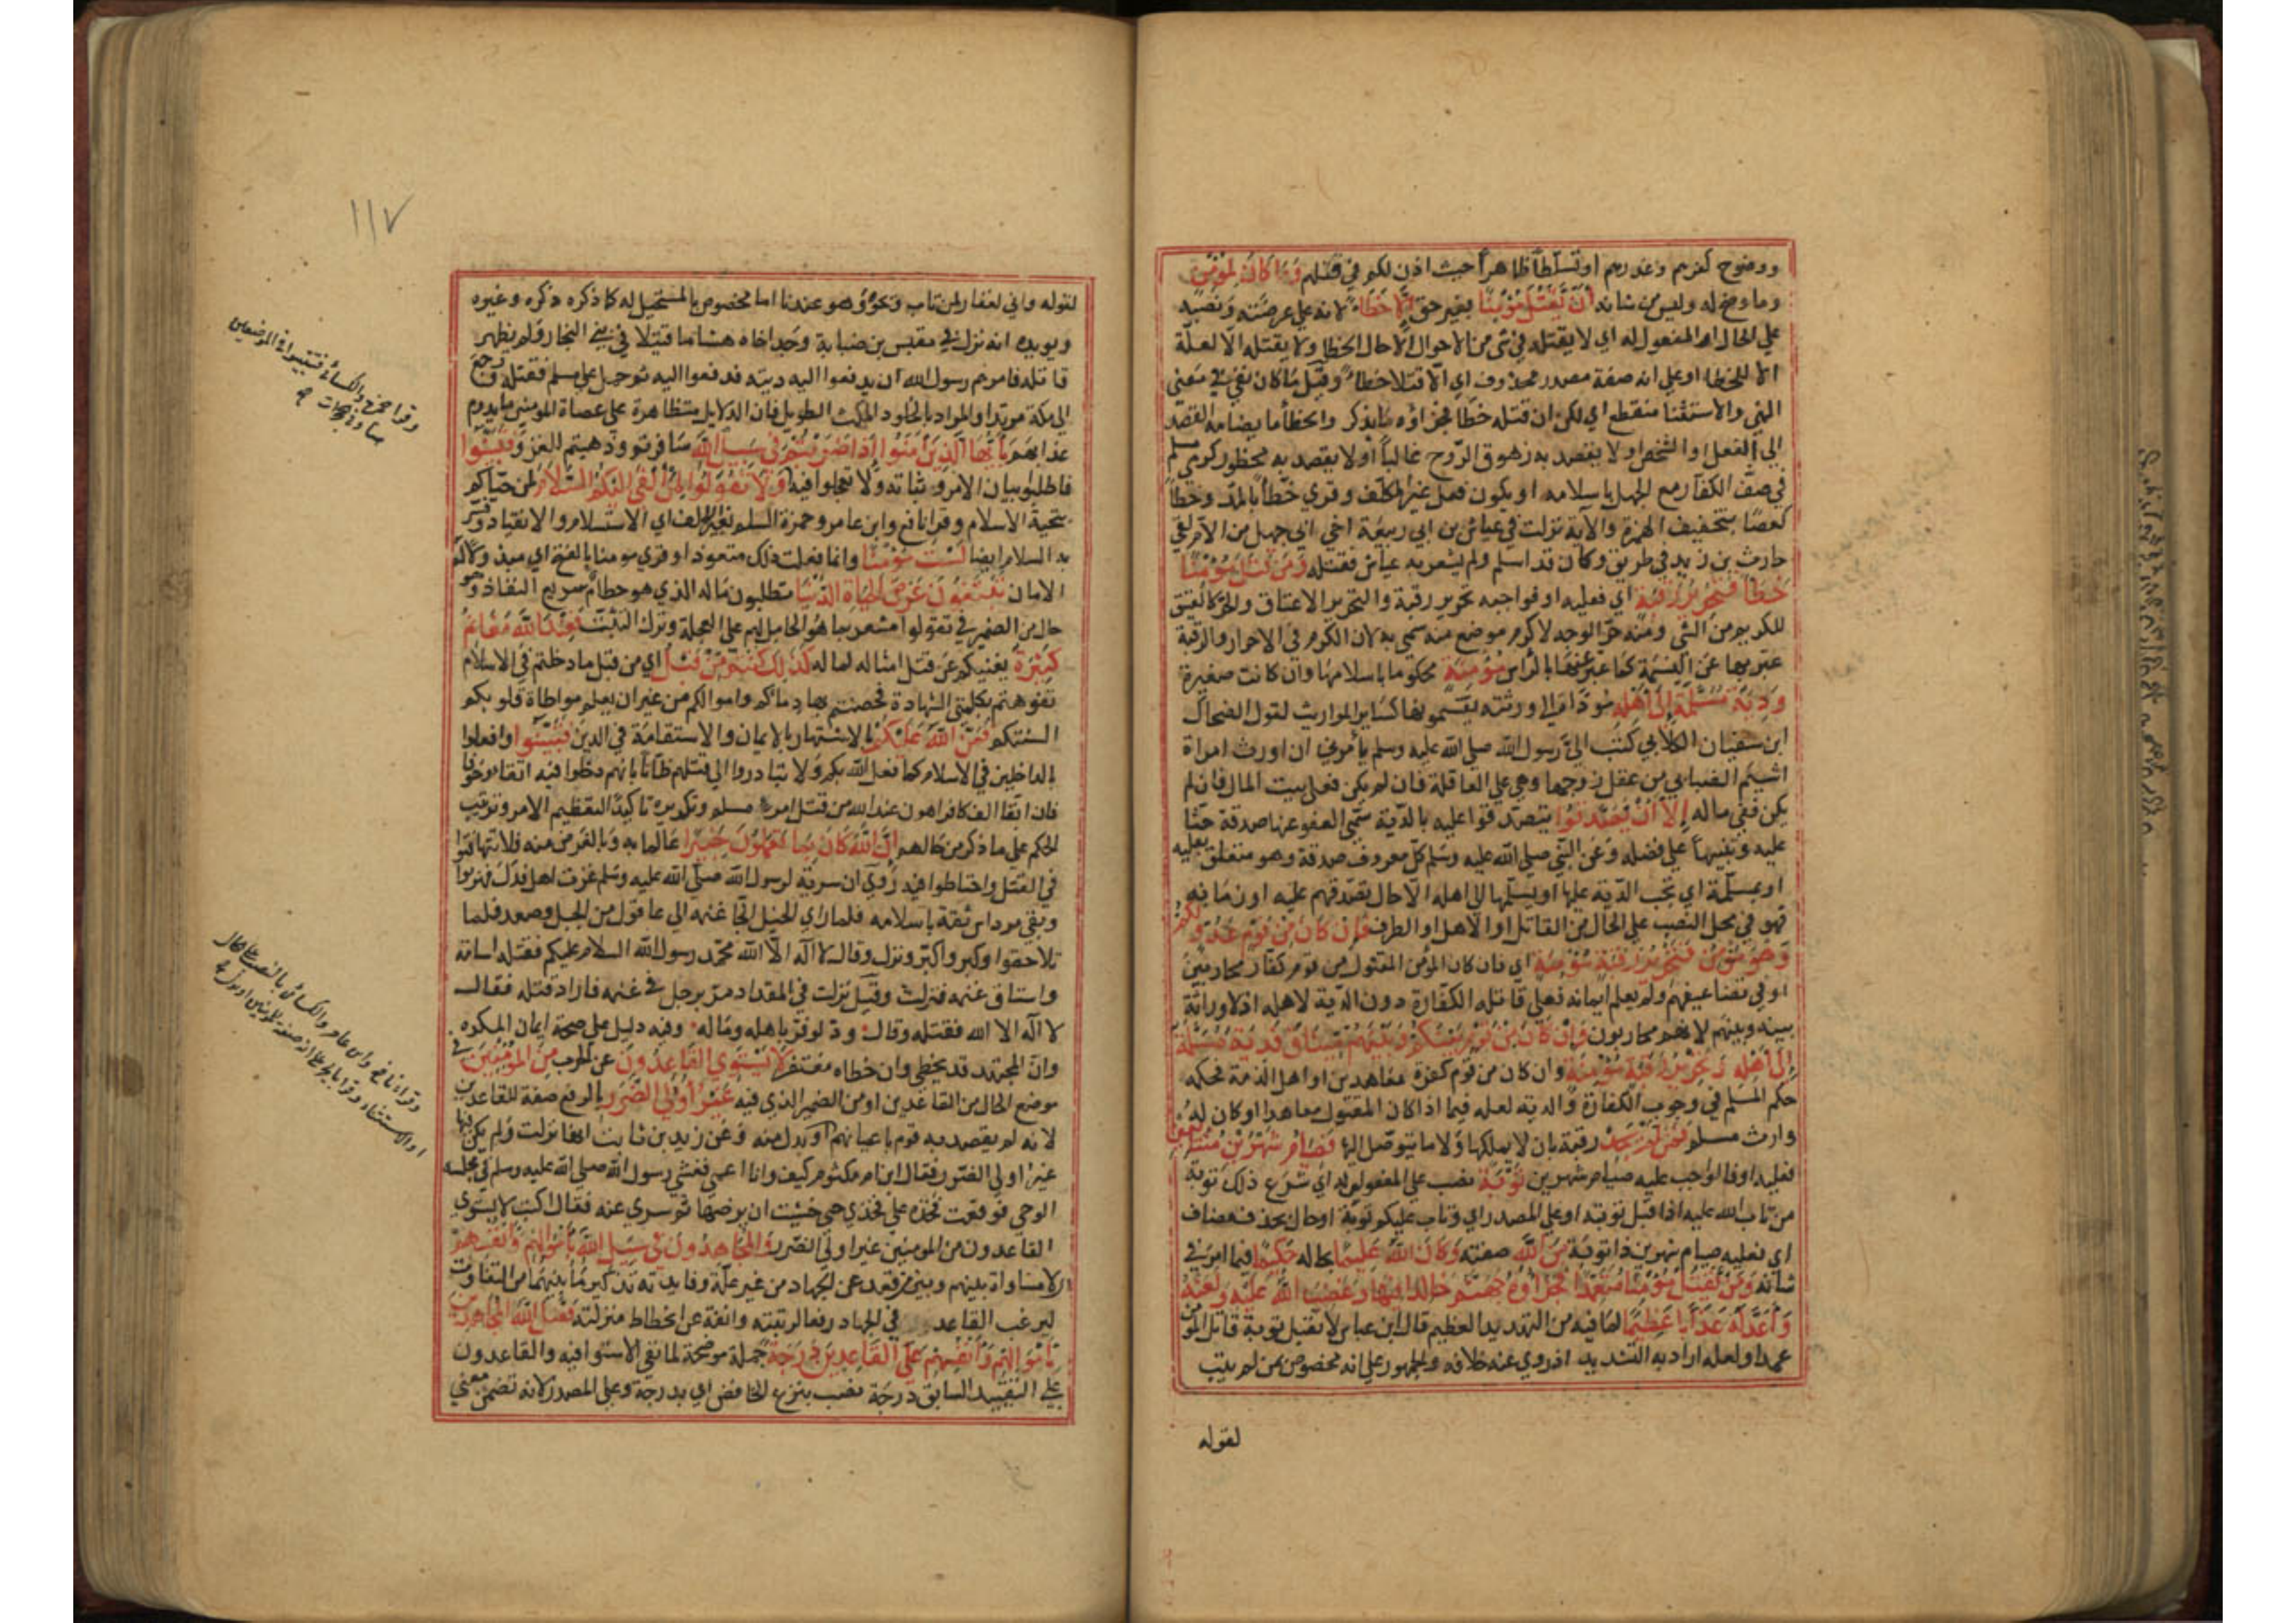 ووضوح كفرهم وغدرهم اوتسلّطاً ظاهراً حيث اذن لكم في قتلهم وَمَا كَانَ لِمُؤْمِنٍ
وماوصح له وليس من شانه أَنْ يَقْتُلَ مُؤْمِنًا بغير حق إِلَّا خَطَأً لانه على عرضته ونصبه
على الحال او المفعول له اي لا يقتله في شئ من الاحوال الّا حال الخطا ولا يقتله الّا لعلّة
الا للخطا او على انه صفة مصدر محذوف اي الّا قتلا خطاء وقيل ما كان نفي في معنى
النهي والاستثنا منقطع اي لكن ان قتله خطاً فجزاؤه ما يذكر والخطأ ما يضامه القصد
الى الفعل او الشخص او لا يقصد به زهوق الرّوح غالباً أو لا يقصد به محظور كرمي مسلم
في صفّ الكفّار مع الجهل باسلامه او يكون فعل غير المكلّف وقري خطّاً بالمدّ وخطاً
كعصًا بتخفيف الهمزة والآية نزلت في عياش بن ابي ربيعة اخي ابي جهل من الام لقي
حارث بن زيد في طريق وكان قد اسلم ولم يشعر به عياش فقتله وَمَنْ قَتَلَ مُؤْمِنًا
خَطَأً فَتَحْرِيرُ رَقَبَةٍ اي فعليه او فواجبه تحرير رقبة والتحرير الاعتاق والحرّ كالعتيق
للكريم من الشي ومنه حرّ الوجه لاكرم موضع منه سمي به لان الكرم في الاحرار والرقبة
عبّر بها عن النسمة كما عبر عنها بالراس مُؤْمِنَةٍ محكوما باسلامها وان كانت صغيرة
وَدِيَةٌ مُسَلَّمَةٌ إِلَى أَهْلِهِ مؤدّاة الى ورثته يقسمونها كساير المواريث لقول الضحاك
ابن سفيان الكلابي كتب اليّ رسول الله صلى الله عليه وسلم يأمرني ان اورث امراة
اشيم الضبابي من عقل زوجها وهي على العاقلة فان لم يكن فعلى بيت المال فان لم
يكن ففي ماله إِلَّا أَنْ يَصَّدَّقُوا يتصدّقوا عليه بالدّية سمّي العفو عنها صدقة حثّا
عليه وتنبيهاً على فضله وعن النبي صلى الله عليه وسلم كلّ معروف صدقة وهو متعلق بعليه
او بمسلّمة اي تجب الدّية عليه او يسلّمها الى اهله الّا حال تصدّقهم عليه او زمانه
فهو في محل النصب على الحال من القاتل او الاهل او الظرف فَإِنْ كَانَ مِنْ قَوْمٍ عَدُوٍّ لَكُمْ
وَهُوَ مُؤْمِنٌ فَتَحْرِيرُ رَقَبَةٍ مُؤْمِنَةٍ اي فان كان المؤمن المقتول من قوم كفّار محاربين
او في تضاعيفهم ولم يعلم ايمانه فعلى قاتله الكفّارة دون الدّية لاهله اذ لا وراثة
بينه وبينهم لانهم محاربون وَإِنْ كَانَ مِنْ قَوْمٍ بَيْنَكُمْ وَبَيْنَهُمْ مِيثَاقٌ فَدِيَةٌ مُسَلَّمَةٌ
إِلَى أَهْلِهِ وَتَحْرِيرُ رَقَبَةٍ مُؤْمِنَةٍ وان كان من قوم كفرة معاهدين او اهل الذمة فحكمه
حكم المسلم في وجوب الكفارة والدية لعله فيما اذا كان المقتول معاهدا او كان له
وارث مسلم فَمَنْ لَمْ يَجِدْ رقبة بان لا يملكها ولا ما يتوصّل اليها فَصِيَامُ شَهْرَيْنِ مُتَتَابِعَيْنِ
فعليه او فالواجب عليه صيام شهرين تَوْبَةً نصب على المفعول له اي شرع ذلك توبة
من تاب الله عليه اذا قبل توبته او على المصدر اي وتاب عليكم توبة او حال بحذف مضاف
اي فعليه صيام شهرين ذا توبة مِنَ اللَّهِ صفته وَكَانَ اللَّهُ عَلِيمًا بحاله حَكِيمًا فيما امر في
شانه وَمَنْ يَقْتُلْ مُؤْمِنًا مُتَعَمِّدًا فَجَزَاؤُهُ جَهَنَّمُ خَالِدًا فِيهَا وَغَضِبَ اللَّهُ عَلَيْهِ وَلَعَنَهُ
وَأَعَدَّ لَهُ عَذَابًا عَظِيمًا لما فيه من التهديد العظيم قال ابن عباس لا تقبل توبة قاتل المؤمن
عمدا ولعله اراد به التشديد اذ روي عنه خلافه والجمهور على انه مخصوص بمن لم يتب
لقوله
١١٧
لقوله واني لغفار لمن تاب ونحوه وهو عندنا اما مخصوص بالمستحيل له كما ذكره ذكره وغيره
ويويده انه نزل في مقيس بن ضبابة وجد اخاه هشاما قتيلا في بني النجار ولم يظهر
قاتله فامرهم رسول الله ان يدفعوا اليه ديته فدفعوا اليه ثم حمل على مسلم فقتله ورجع
الى مكة مرتدا والمراد بالخلود المكث الطويل فان الدلايل متظاهرة على عصاة المومنين ما يدوم
عذابهم يَا أَيُّهَا الَّذِينَ آمَنُوا إِذَا ضَرَبْتُمْ فِي سَبِيلِ اللَّهِ سافرتم وذهبتم للغزو فَتَبَيَّنُوا
فاطلبوا بيان الامر وثباته ولا تعجلوا فيه وَلَا تَقُولُوا لِمَنْ أَلْقَى إِلَيْكُمُ السَّلَامَ لمن حيّاكم
بتحية الاسلام وقرا نافع وابن عامر وحمزة السلم بغير الالف اي الاستسلام والانقياد وفسر
به السلام ايضا لَسْتَ مُؤْمِنًا وانما فعلت ذلك متعوذا وقري مومنا بالفتح اي مبذولا له
الامان تَبْتَغُونَ عَرَضَ الْحَيَاةِ الدُّنْيَا تطلبون ماله الذي هو حطام سريع النفاذ وهو
حال من الضمير في تقولوا مشعر بما هو الحامل لهم على العجلة وترك التثبت فَعِنْدَ اللَّهِ مَغَانِمُ
كَثِيرَةٌ يغنيكم عن قتل امثاله لماله كَذَلِكَ كُنْتُمْ مِنْ قَبْلُ اي من قبل ما دخلتم في الاسلام
تفوهتم بكلمتي الشهادة فحصنتم بها دماكم واموالكم من غير ان يعلم مواطاة قلوبكم
السنتكم فَمَنَّ اللَّهُ عَلَيْكُمْ بالاشتهار بالايمان والاستقامة في الدين فَتَبَيَّنُوا وافعلوا
بالداخلين في الاسلام كما فعل الله بكم ولا تبادروا الى قتلهم ظانّا بانهم دخلوا فيه اتقاء وخوفا
فان ابقا الف كافر اهون عند الله من قتل امرئ مسلم وتكريره تاكيد لتعظيم الامر وترتيب
الحكم على ما ذكر من حالهم إِنَّ اللَّهَ كَانَ بِمَا تَعْمَلُونَ خَبِيرًا عالما به وبالغرض منه فلا تتهافتوا
في القتل واحتاطوا فيه رُوي ان سرية لرسول الله صلى الله عليه وسلم غزت اهل فدك فهربوا
وبقي مرداس ثقة باسلامه فلما راي الخيل الجا غنمه الى عاقول من الجبل وصعد فلما
تلاحقوا وكبروا كبّر ونزل وقال لا اله الّا الله محمّد رسول الله السلام عليكم فقتله اسامة
واستاق غنمه فنزلت وقيل نزلت في المقداد مرّ برجل في غنمه فاراد قتله فقال
لا اله الا الله فقتله وقال ودّ لو فرّ باهله وماله وفيه دليل على صحة ايمان المكره
وانّ المجتهد قد يخطي وان خطاه مغتفر لَا يَسْتَوِي الْقَاعِدُونَ عن الحرب مِنَ الْمُؤْمِنِينَ في
موضع الحال من القاعدين او من الضمير الذي فيه غَيْرُ أُولِي الضَّرَرِ بالرفع صفة للقاعدين
لانه لم يقصد به قوم باعيانهم او بدل منه وعن زيد بن ثابت انها نزلت ولم يكن فيها
غير اولي الضرر فقال ابن ام مكتوم كيف وانا اعمى فغشي رسول الله صلى الله عليه وسلم في مجلسه
الوحي فوقعت فخذه على فخذي حتى خشيت ان يرضها ثم سري عنه فقال اكتب لا يستوي
القاعدون من المومنين غير اولي الضرر وَالْمُجَاهِدُونَ فِي سَبِيلِ اللَّهِ بِأَمْوَالِهِمْ وَأَنْفُسِهِمْ
لا مساواة بينهم وبين من قعد عن الجهاد من غير علّة وفايدته تذكير ما بينهما من التفاوت
ليرغب القاعد في الجهاد رفعا لرتبته وانفة عن انحطاط منزلته فَضَّلَ اللَّهُ الْمُجَاهِدِينَ
بِأَمْوَالِهِمْ وَأَنْفُسِهِمْ عَلَى الْقَاعِدِينَ دَرَجَةً جملة موضحة لما نفي الاستوا فيه والقاعدون
على التقييد السابق درجة نصب بنزع الخافض اي بدرجة وعلى المصدر لانه تضمن معنى
وقرا حمزة والكسائي فتثبتوا في الموضعين
هنا وفي الحجرات
وقراء نافع وابن عامر والكسائي بالنصب على الحال
او الاستثناء وقرا بالجر على انه صفة للمومنين او بدل